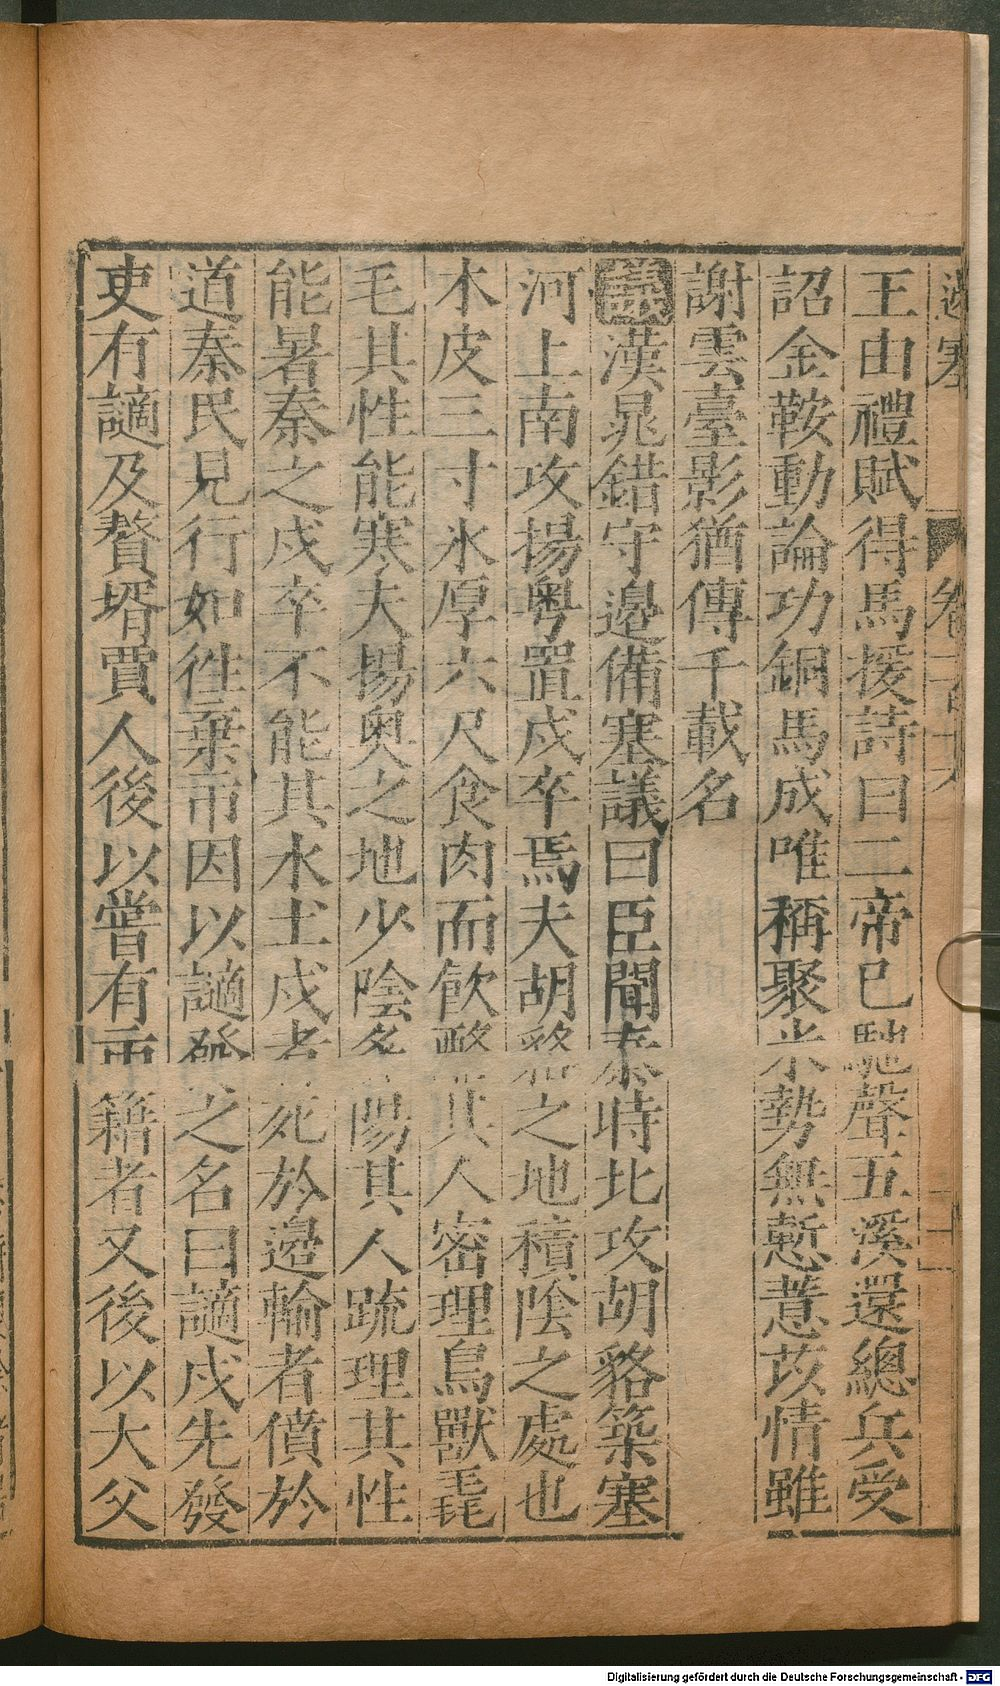 王由禮賦得馬援詩曰二帝已馳聲五溪還總兵受
詔金鞍動論功銅馬成唯稱聚米勢無慙薏苡情雖
謝雲臺影猶傳千載名
議漢晁錯守邊備塞議曰臣聞秦時北攻胡貉築塞
河上南攻揚粵置戍卒焉夫胡貉之地積陰之處也
木皮三寸氷厚六尺食肉而飲酪其人密理鳥獸毳
毛其性能寒夫揚奥之地少陰多陽其人疏理其性
能暑秦之戍卒不能其水土戍者死於邊輸者僨於
道秦民見行如徃棄市因以謫發之名曰謫戍先發
吏有謫及贅壻賈人後以嘗有市籍者又後以大父
Digitalisierung gefördert durch die Deutsche Forschungsgemeinschaft - DFG